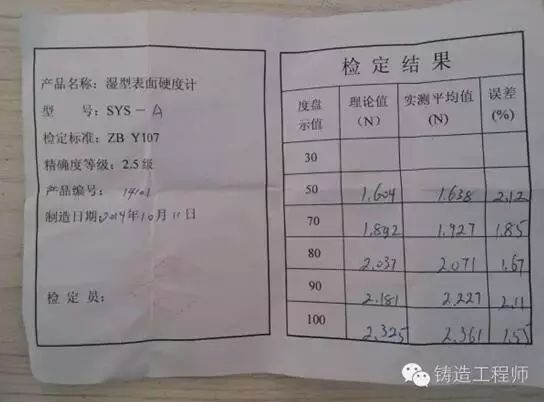 产品名称：湿型表面硬度计
型 号：SYS－A
检定标准：ZB Y107
精确度等级：2.5级
产品编号：14101
制造日期：2014年10月11日
检 定 员：
检 定 结 果
度盘示值 理论值（N） 实测平均值(N) 误差(%)
30
50 1.604 1.638 2.12
70 1.892 1.927 1.85
80 2.037 2.071 1.67
90 2.181 2.227 2.11
100 2.325 2.361 1.55
铸造工程师